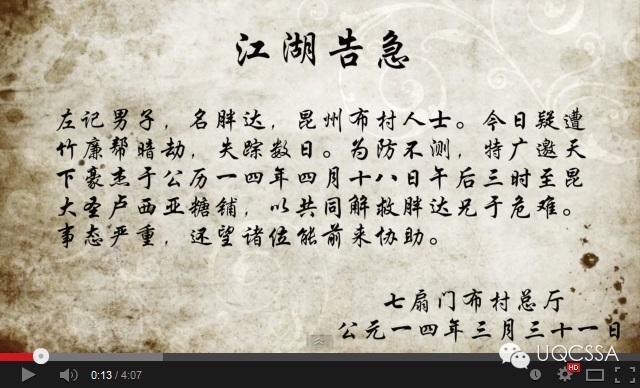 江湖告急
左记男子，名胖达，昆州布村人士。今日疑遭
竹廉帮暗劫，失踪数日。为防不测，特广邀天
下豪杰于公历一四年四月十八日午后三时至昆
大圣卢西亚糖铺，以共同解救胖达兄于危难。
事态严重，还望诸位能前来协助。
七扇门布村总厅
公元一四年三月三十一日
UQCSSA
0:13 / 4:07
HD